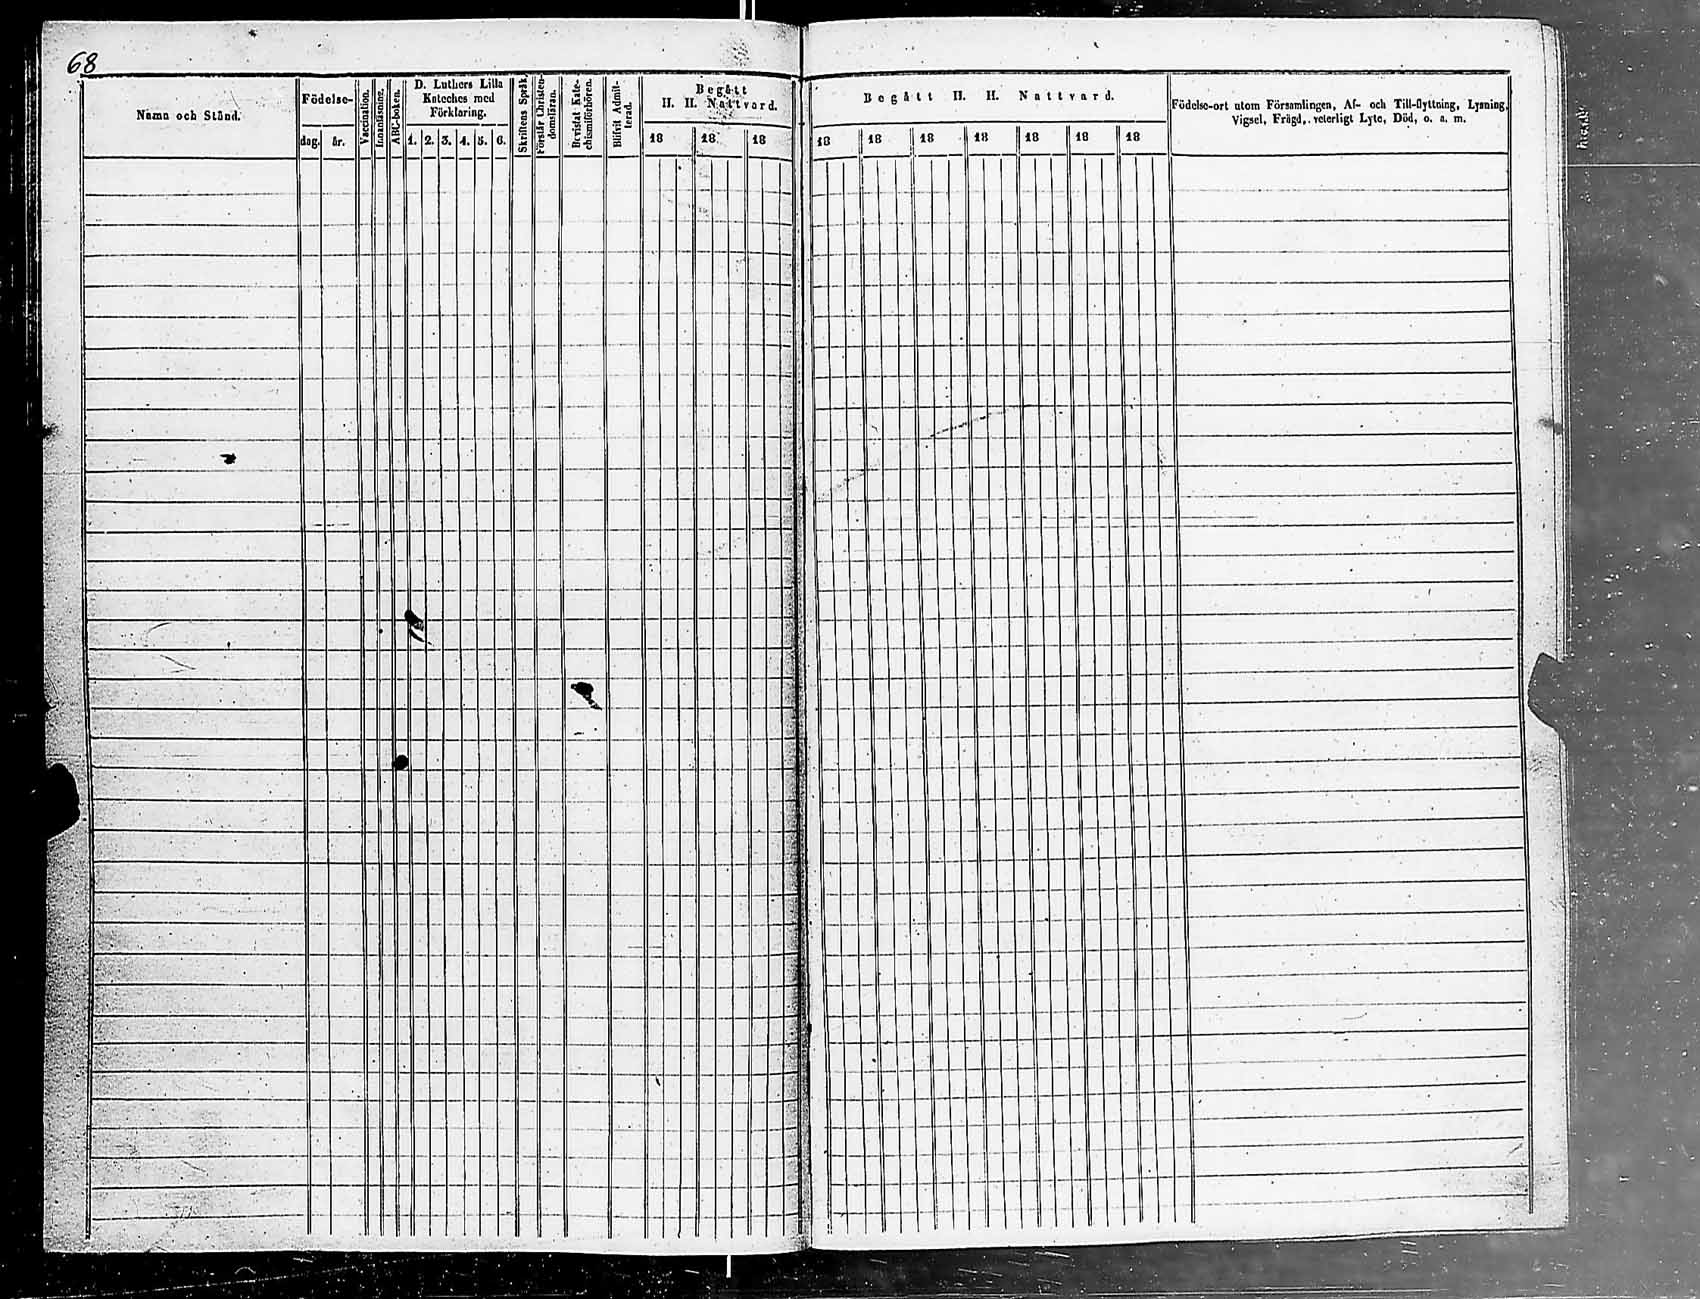 68
Namn och Stånd.
Födelse-
dag. år.
Vaccination.
Innanläsning.
ABC-boken.
D. Luthers Lilla
Kateches med
Förklaring.
1. 2. 3. 4. 5. 6.
Skriftens Språk.
Förstår Christen-
domsläran.
Bevistat Kate-
chismiförhören.
Blifvit Admit-
terad.
Begått
H. H. Nattvard.
18 18 18
Begått H. H. Nattvard.
18 18 18 18 18 18 18
Födelse-ort utom Församlingen, Af- och Till-flyttning, Lysning,
Vigsel, Frägd, veterligt Lyte, Död, o. a. m.